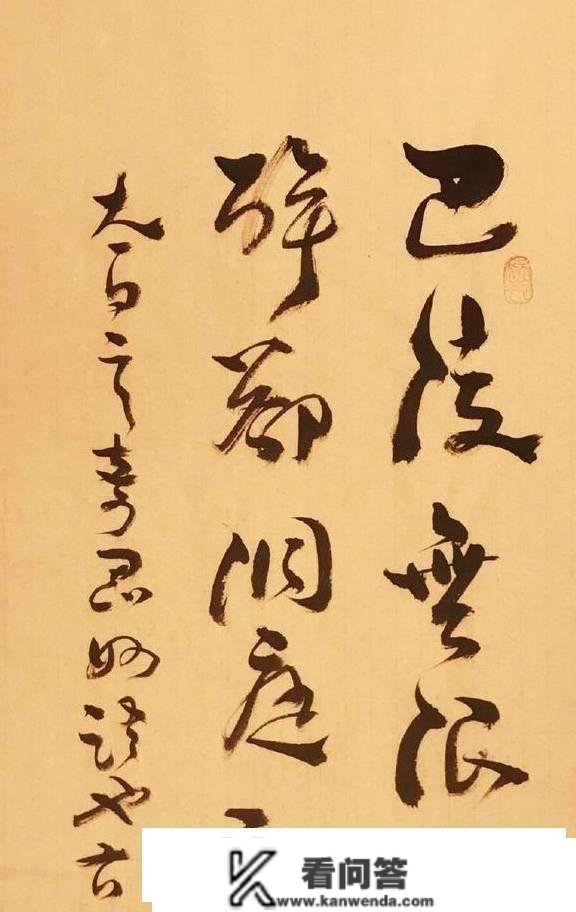 巴陵無限
醉殺洞庭
太白之奇思妙語也古
看问答
www.kanwenda.com